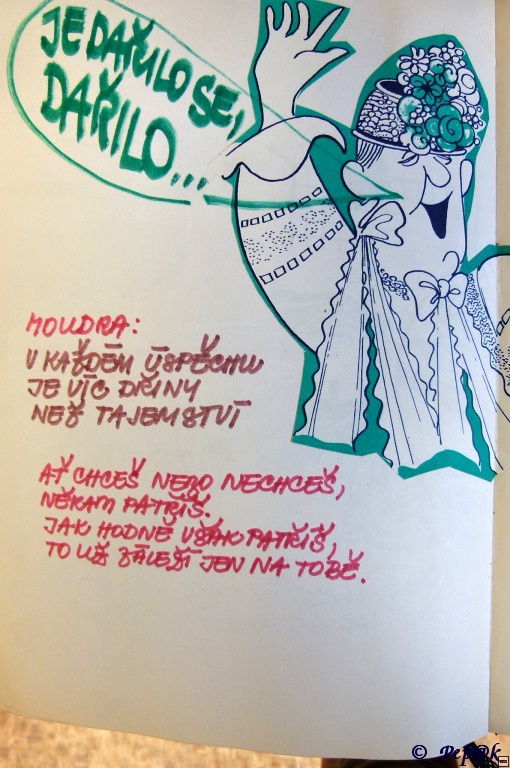 JE DAŘILO SE,
DAŘILO...
MOUDRA:
V KAŽDÉM ÚSPĚCHU
JE VÍC DŘINY
NEŽ TAJEMSTVÍ
AŤ CHCEŠ NEBO NECHCEŠ,
NĚKAM PATŘÍŠ.
JAK HODNĚ VŠAK PATŘÍŠ,
TO UŽ ZÁLEŽÍ JEN NA TOBĚ.